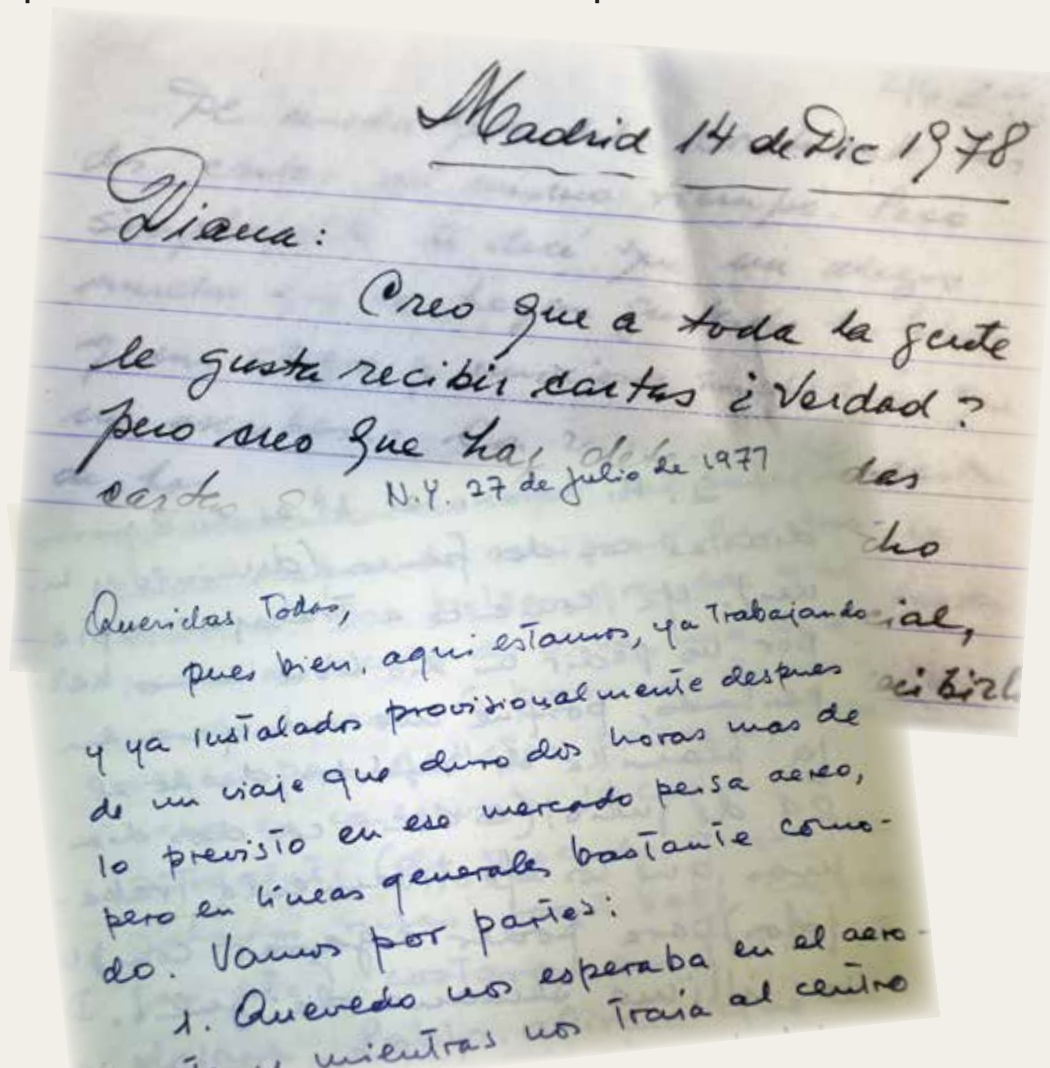 Madrid 14 de Dic 1978
Diana:
Creo que a toda la gente
le gusta recibir cartas ¿Verdad?
pero creo que has das
cartas
cho
ial,
N.Y. 27 de julio de 1977
Queridas Todas,
pues bien, aqui estamos, ya Trabajando
y ya instalados provisionalmente despues
de un viaje que duro dos horas mas de
lo previsto en ese mercado persa aereo,
pero en líneas generales bastante como-
do. Vamos por partes:
1. Quevedo nos esperaba en el aero-
mientras nos traia al centro